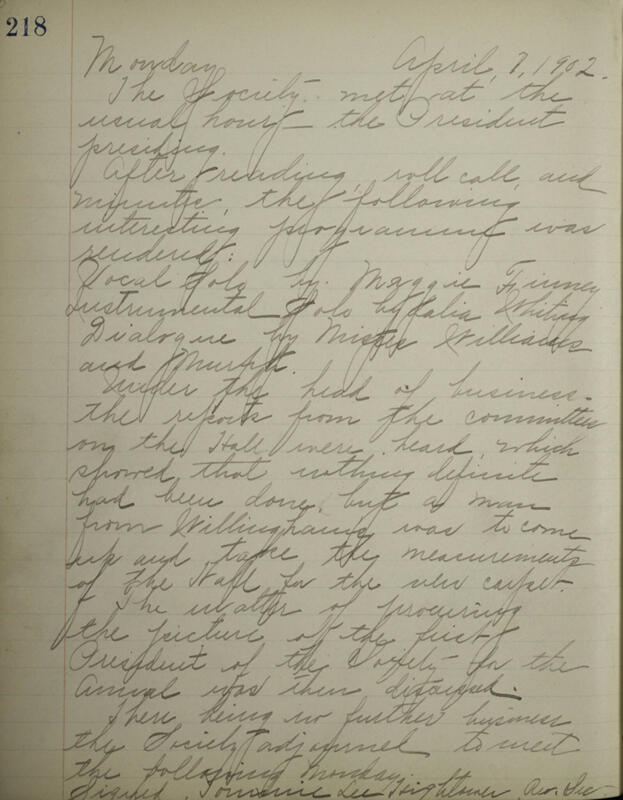 218
Monday April, 7, 1902.
The Society met at the
usual hour – the President
presiding.
After reading, roll call, and
minutes, the following
interesting programme was
rendered:
Vocal Solo by Maggie Finney
Instrumental Solo by Lalia Whiting
Dialogue by Misses Williams
and
Under the head of business –
the reports from the committees
on the Hall were heard, which
showed that nothing definite
had been done, but a man
from Willinghams was to come
up and take the measurements
of the Hall for the new carpet.
The matter of procuring
the picture of the first
President of the Society for the
Annual was then discussed.
There being no further business
the Society adjourned to meet
the following Monday.
Signed, Tommie Lee Hightower Rec. Sec.